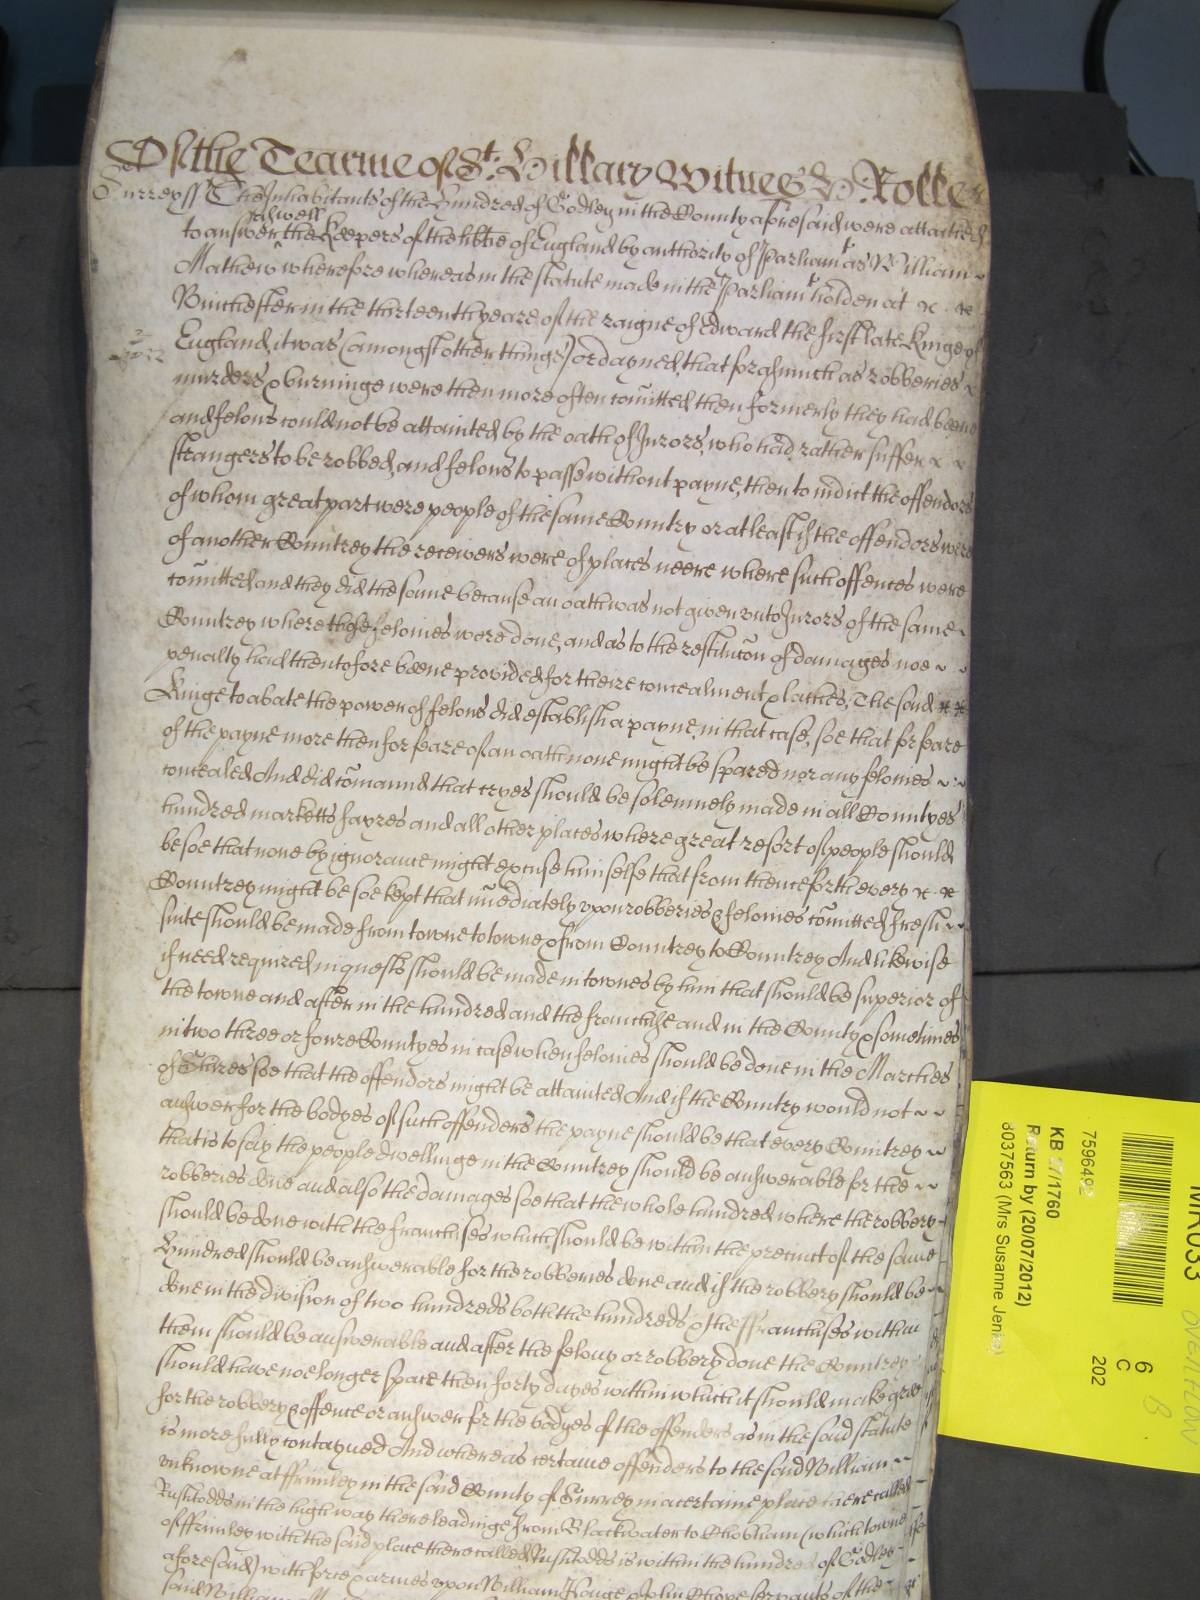 Of the Tearme of St. Hillary Witnes H. Rolle
Surrey ss The Inhabitants of the Hundred of Godley in the County aforesaid were attached
to answer the Keepers of the libtie of England by authority of Parliamt as William
aswell
Mathew wherefore whereas in the statute made in the Parliamt holden at
Winchester in the thirteenth yeare of the raigne of Edward the first late Kinge of
England it was (amongst other things) ordayned, that forasmuch as robberies
murders & burninge were then more often comitted then formerly they had beene
and felons could not be attainted by the oath of Jurors, who had rather suffer
strangers to be robbed, and felons to passe without payne, then to indict the offendors
of whom great part were people of the same Country or at least if the offendors were
of another Countrey the receivers were of places neere where such offences were
comitted and they did the same because an oath was not given unto Jurors of the same
Countrey where those felonies were done, and as to the restitucon of damages noe
penalty had thentofore beene provided for theire concealment & laches, The said
Kinge to abate the power of felons did establish a payne in that case, soe that for feare
of the payne more then for feare of an oath none might be spared nor any felonies
concealed And did comaund that cryes should be solemnely made in all Countyes
hundred marketts fayres and all other places where great resort of people should
be soe that none by ignorance might excuse himselfe that from thenceforth every
Countrey might be soe kept that imediately upon robberies & felonies comitted fresh
suite should be made from towne to towne & from Countrey to Countrey And likewise
if need required inquests should be made in townes by him that should be superior of
the towne and after in the hundred and the franchise and in the County & sometimes
in two three or foure Countyes in case when felonies should be done in the Marches
of Shires soe that the offendors might be attainted And if the Country would not
answer for the bodyes of such offenders the payne should be that every Countrey
that is to say the people dwellinge in the Countrey should be answerable for the
robberies done and also the damages soe that the whole hundred where the robbery
should be done with the franchises which should be within the precinct of the same
Hundred should be answerable for the robberies done and if the robbery should be
done in the division of two hundreds both the hundreds & the ffranchises within
them should be answerable and after the felony or robbery done the Countrey
should have noe longer space then forty dayes within which it should make gree
for the robbery & offence or answer for the bodyes of the offenders as in the said statute
is more fully contayned And whereas certaine offenders to the said William
unknowne at ffrimley in the said County of Surrey in a certaine place there called
Rushtodds in the high way there leadinge from Blackwater to Chobham (which towne
of ffrimley with the said place there called Rushtodds is within the hundred of Godley
aforesaid) with force & armes upon William Hauge & John Chope servants of the
said William
7596492
KB 27/1760
Return by (20/07/2012)
8037563 (Mrs Susanne Jenks)
6
C
202